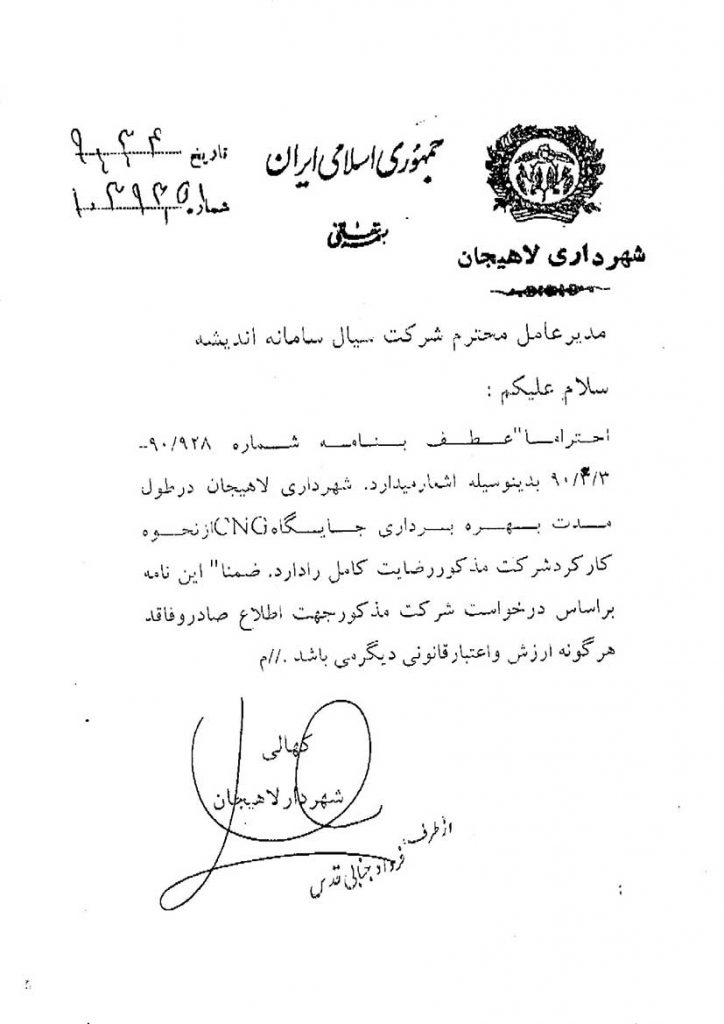 جمهوری اسلامی ایران
بسمه تعالی
شهرداری لاهیجان
تاریخ
شماره
مدیرعامل محترم شرکت سیال سامانه اندیشه
سلام علیکم :
احتراما" عطف بنامه شماره ۹۰/۹۲۸-
۹۰/۳/۳ بدینوسیله اشعارمیدارد. شهرداری لاهیجان درطول
مدت بهره برداری جایگاه CNG ازنحوه
کارکردشرکت مذکوررضایت کامل رادارد. ضمنا" این نامه
براساس درخواست شرکت مذکورجهت اطلاع صادروفاقد
هرگونه ارزش واعتبارقانونی دیگرمی باشد .//م
کهالی
شهردارلاهیجان
ازطرف: